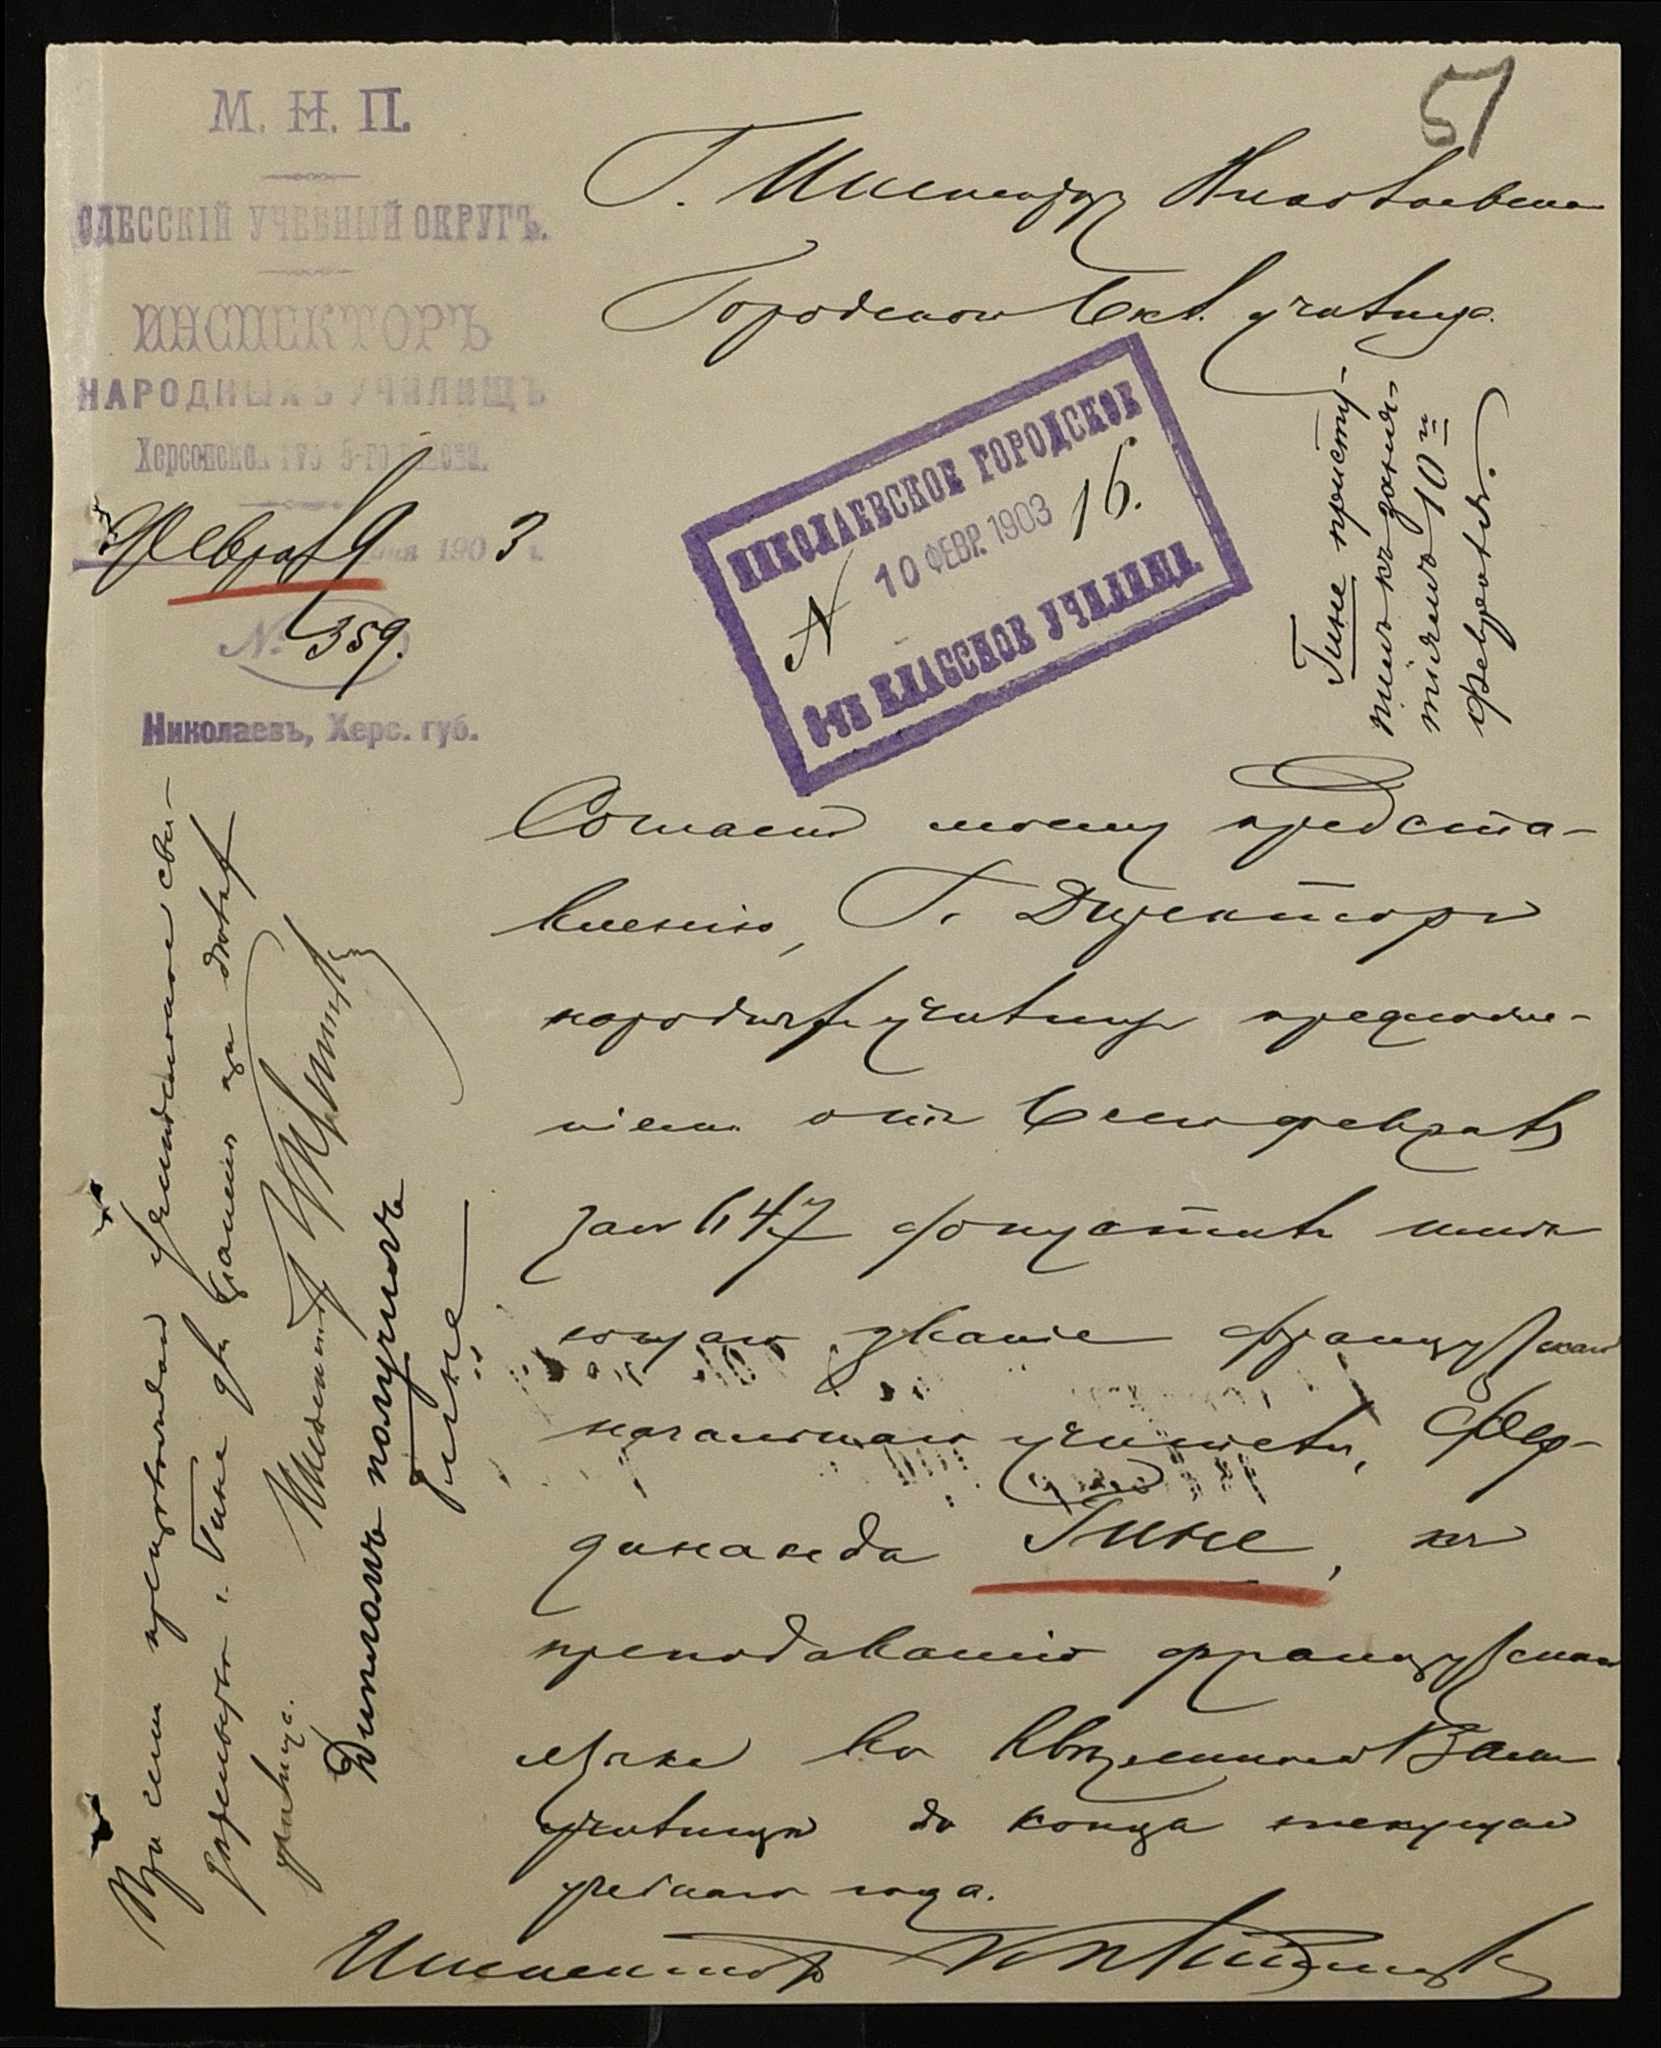 51
М. Н. П.
ОДЕССКІЙ УЧЕБНЫЙ ОКРУГЪ.
ИНСПЕКТОРЪ
НАРОДНЫХЪ УЧИЛИЩЪ
Херсонской губ 5-го района.
Феврал 9 дня 1903 г.
№ 359.
Николаевъ, Херс. губ.
Г. Инспектору Николаевскаго
Городского 6 кл. училища.
НИКОЛАЕВСКОЕ ГОРОДСКОЕ
10 ФЕВР. 1903
№ 16.
6-ТИ КЛАССНОЕ УЧИЛИЩЕ.
Гине присту-
пилъ къ заня-
тіямъ 10го
февраля.
Согласно моему предста-
вленію, Г. Директоръ
народныхъ училищъ предложе-
ніемъ отъ 6 сего февраля
за № 647 допустилъ имѣ
ющаго званіе французскаго
начальнаго учителя, Фер-
динанда Гине, къ
преподаванію французскаго
языка во ввѣренномъ Вамъ
училищѣ до конца текущаго
учебнаго года.
Инспекторъ
При семъ препровождаю
Гине для
училища.
Инспекторъ
Дипломъ получилъ
Гине